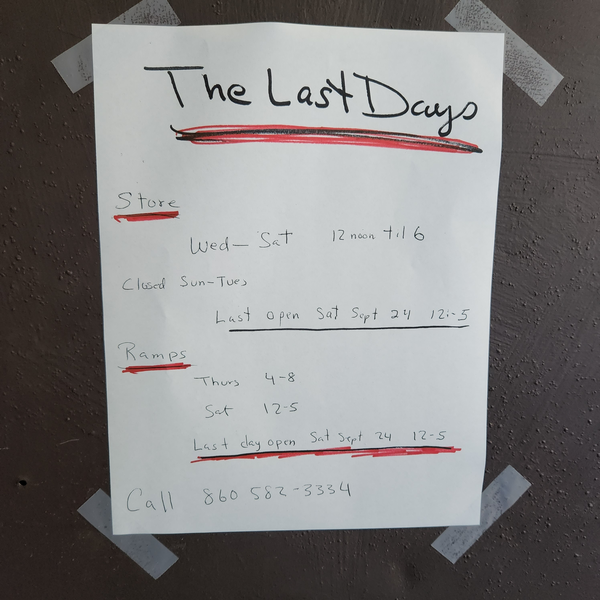 The Last Days
Store
Wed - Sat 12 noon til 6
Closed Sun-Tues
Last open Sat Sept 24 12-5
Ramps
Thurs 4-8
Sat 12-5
Last day open Sat Sept 24 12-5
Call 860 582-3334